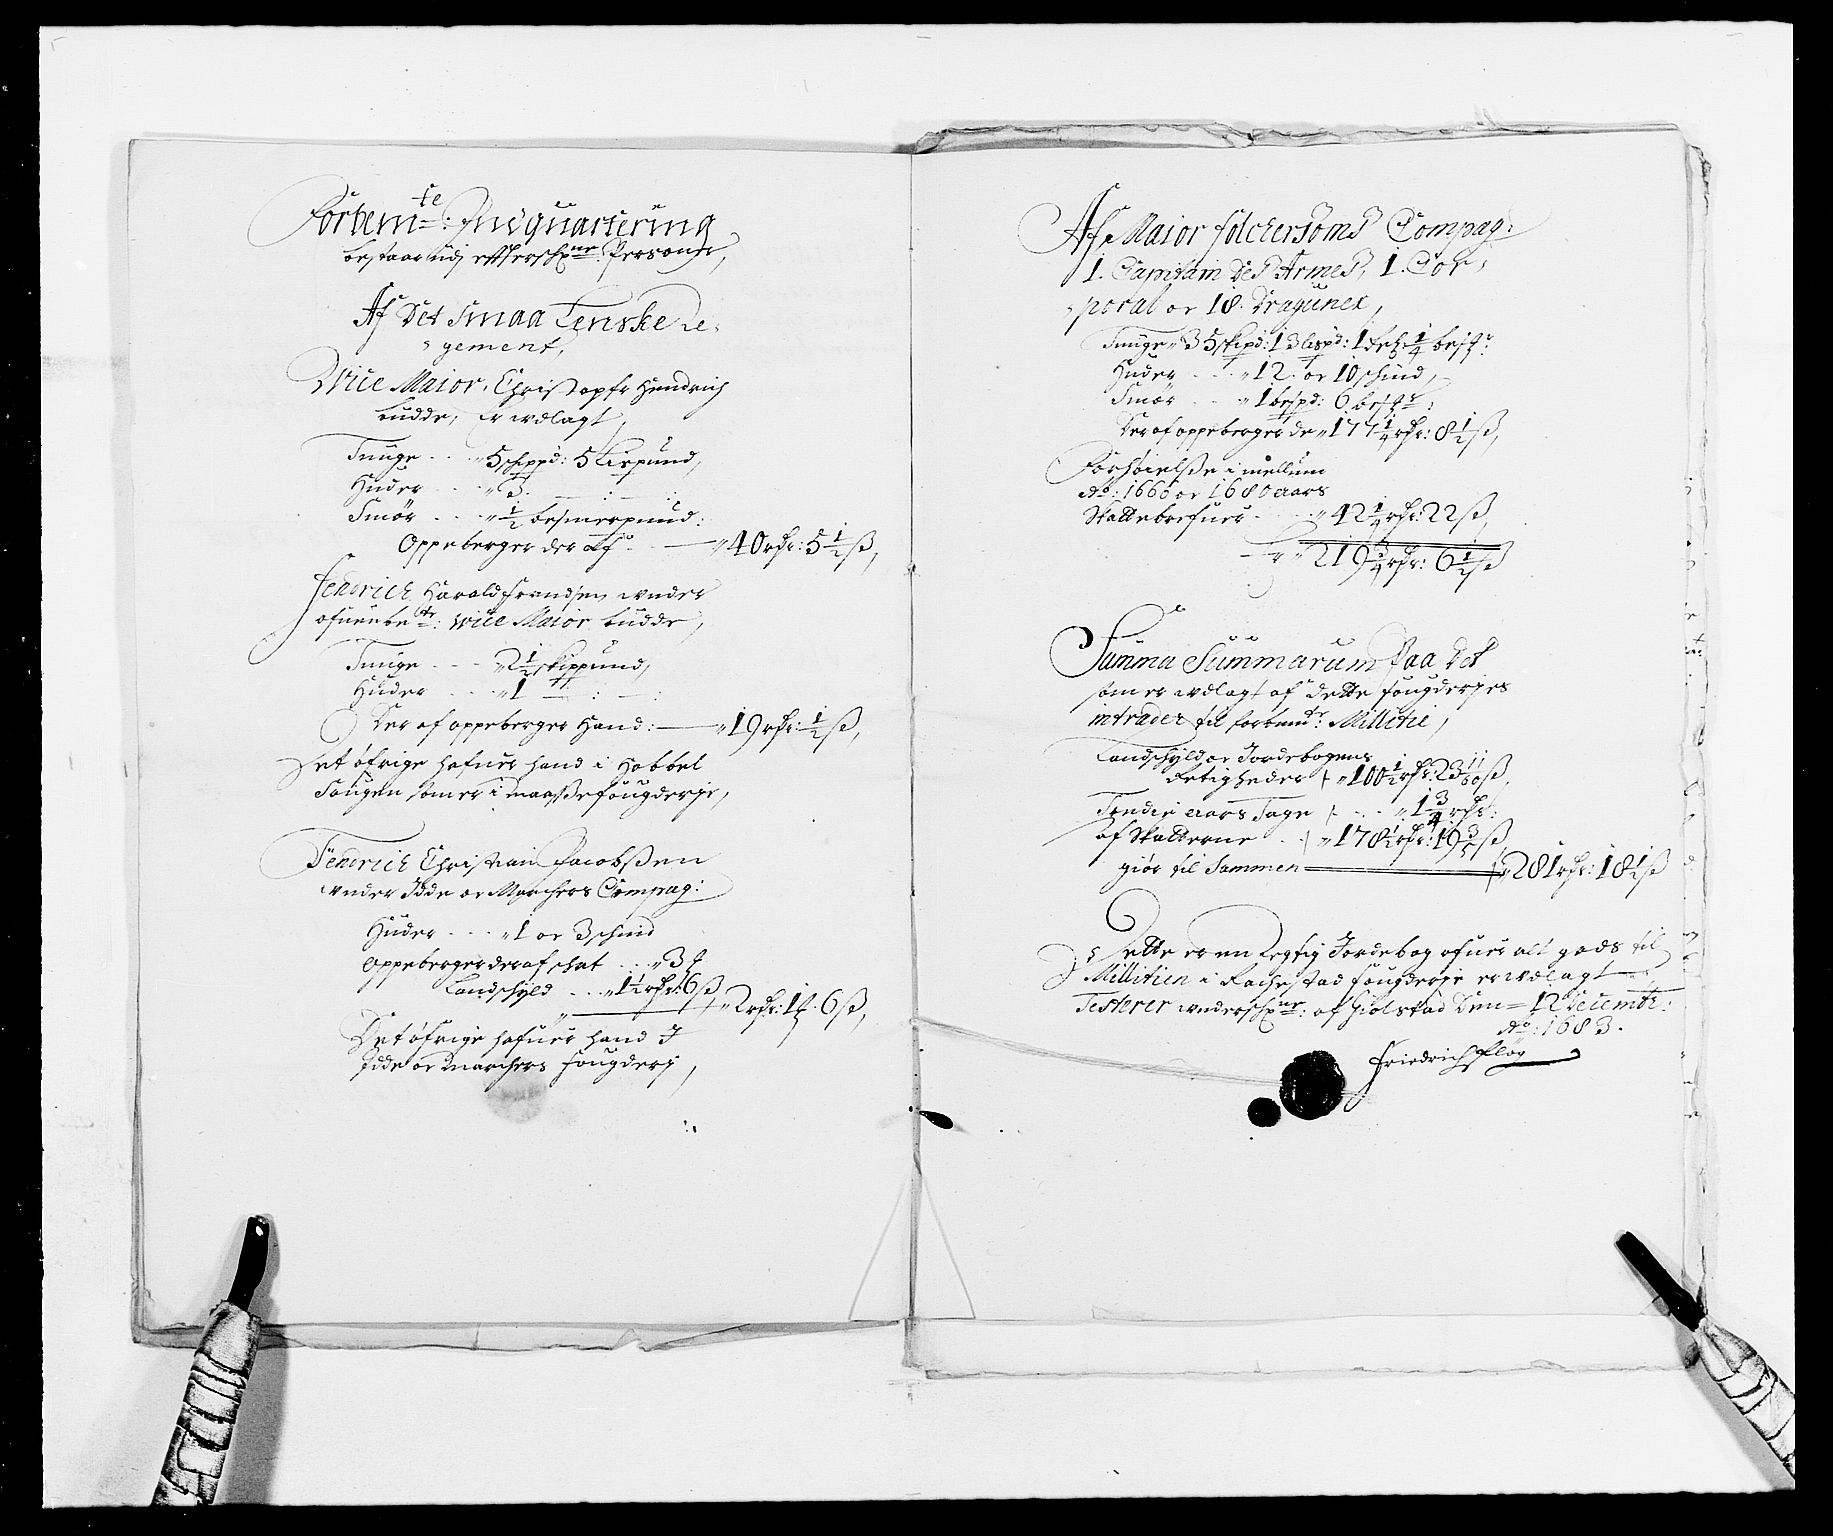 Forbem.te Indquartering
bestaar udj effterschr.ne Persohner,
Af Det Smaa Lenske Re-
gement,
Vice Maior, Christopfr Hendrich
Budde, er wdlagt,
Tunge - - - 5 schippd: 5 Lispund,
Huder - - - 3 - : - :
Smør - - - 1/2 besmerpund:
Oppeberger der af - - - 40 rdr: 5 1/2 ß,
Fendrich Harald Frandsen wnder
ofuenbe.te: Wice Maior Budde,
Tunge - - - 2 1/2 skippund,
Huder - - - 1 - : - :
Der af oppeberger Hand: - - 19 rdr: 1/2 ß,
Det øfrige hafuer hand i Hobbel
Sougen som er i maasse fougderje,
Fendrich Christian Jacobssen
wnder Idde oc Marchers Compag:
Huder - - - 1 oc 3 schind
Oppeberger der af schat - - - 3
Landschyld - - - 1 1/2 rdr: 6 ß
2 rdr: 1 : 6 ß,
Det øfrige hafuer hand I
Idde oc Marchers fougderj,
Af Maior Folchersoms Compag:
1. Capitain Des Armes, 1. Cor-
poral oc 18. Draguner,
Tunge 35 skipd: 13 lispd: 1 1/4
Huder - - - 12. oc 10 schind,
Smør - - - 1 6
Der af oppeberger de 177 1/4 rdr: 8 1/2 ß,
Forhøielsse i mellum
Ao: 1660 oc 1680 aars
Skattebrefuer - - - 42 1/4 rdr: 22 ß,
219 3/4 rdr: 6 1/2 ß
Summa Summarum Paa Det
som er wdlagt af dette fougderjes
intrader til forbem.te: Millitie,
Landschyld oc Jordebogens
Retigheder 100 1/2 rdr: 23 11/60 ß,
Tredie aars Tage - - - 1 3/4 rdr:
af Skatterne - - 178 rdr: 19 3/5 ß,
giør til Sammen 281 rdr: 18 1/2 ß
Dette er en Regtig Jordebog ofuer alt gods til
Millitien i Rachestad fougderje er wdlagt
Testerer wnderschr.ne: af Giølstad Den 12 Decembr:
Ao: 1683.
Friedrich Flor